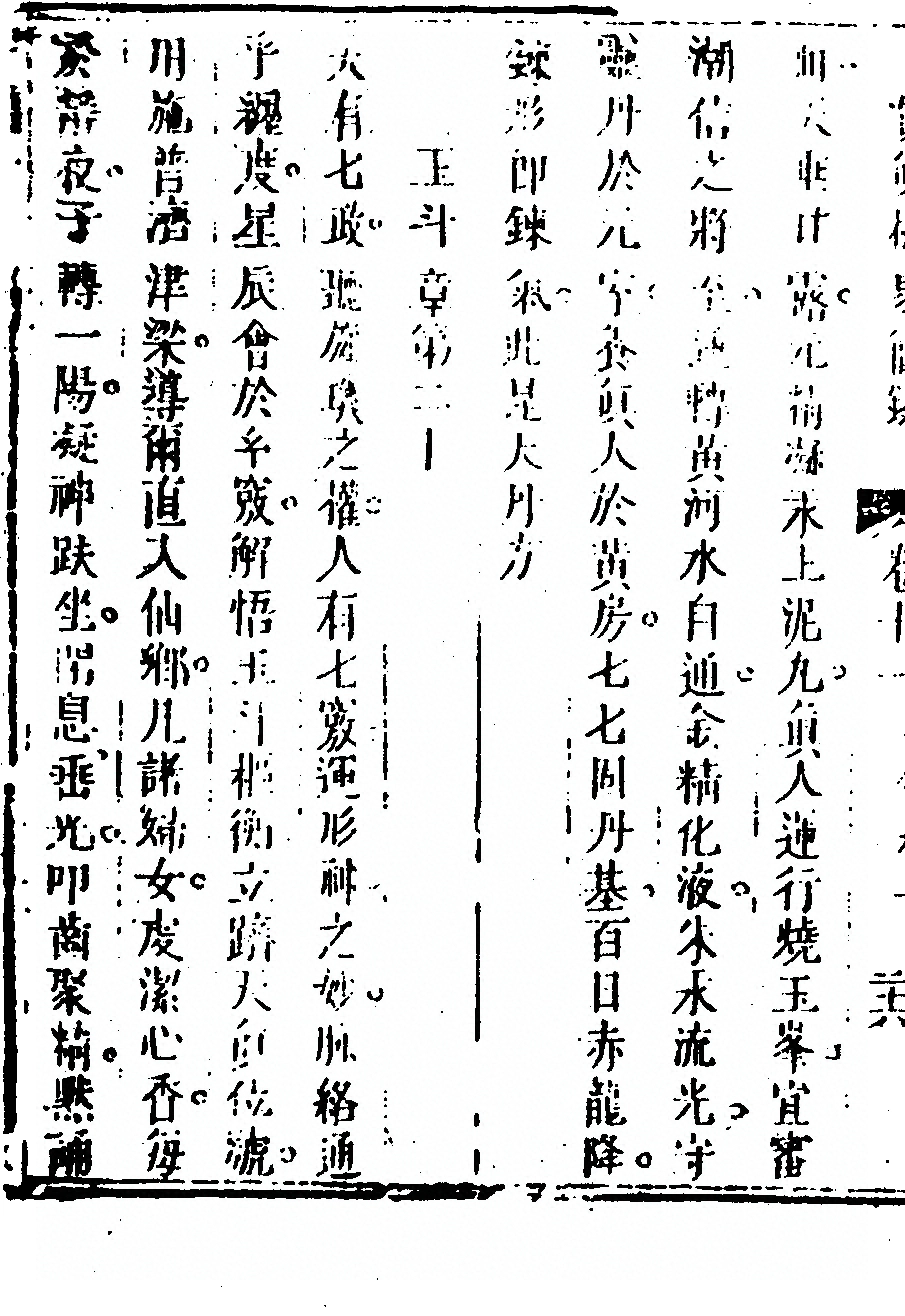 露元精凝永上泥九真人運行燒玉峯宜審
潮信之將至逆轉黃河水自通金精化液朱永流光守
靈丹於元字養真人於黃房七七固丹基百日赤龍降
鍊形卽鍊氣此是大丹方
玉斗章第二十
天有七政聽璇璣之權人有七竅運形神之妙脈絡通
乎躔度星辰會於孚竅解悟玉斗樞衡立躋天真位號
用施普濟津梁導爾直入仙鄉凡諸婦女虔潔心香每
於靜夜子轉一陽凝神趺坐閉息垂光叩齒聚精默誦